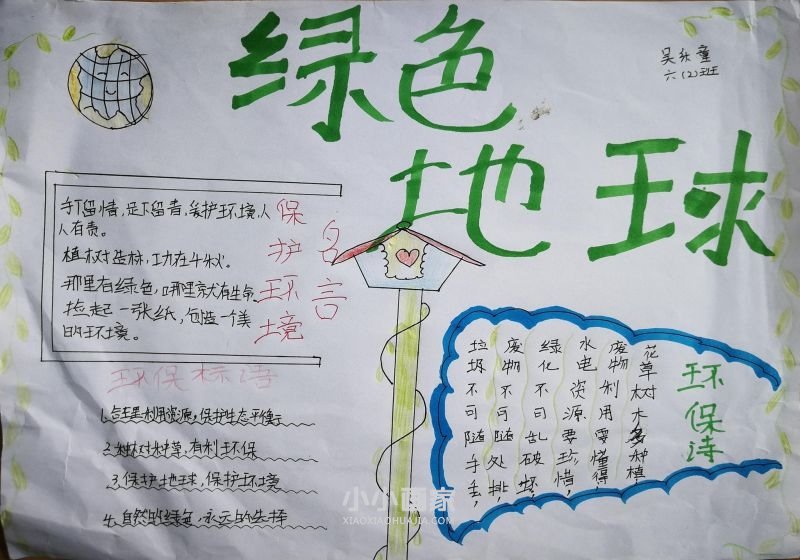 绿色
地球
六(2)班
手下留情,足下留青,爱护环境,人
人有责。
植树造林,功在千秋。
那里有绿色,哪里就有生命。
捡起一张纸,创造一个美
的环境。
保护环境
名言
环保标语
1.合理利用资源,保护生态平衡
2.种树种草,有利环保
3.保护地球,保护环境
4.自然的绿色,永远的选择
环保诗
花草树木多种植,
废物利用要懂得,
水电资源要珍惜,
绿化不可乱破坏,
废物不可随处排,
垃圾不可随手丢,
小小画家
XIAOXIAOHUAJIA.COM